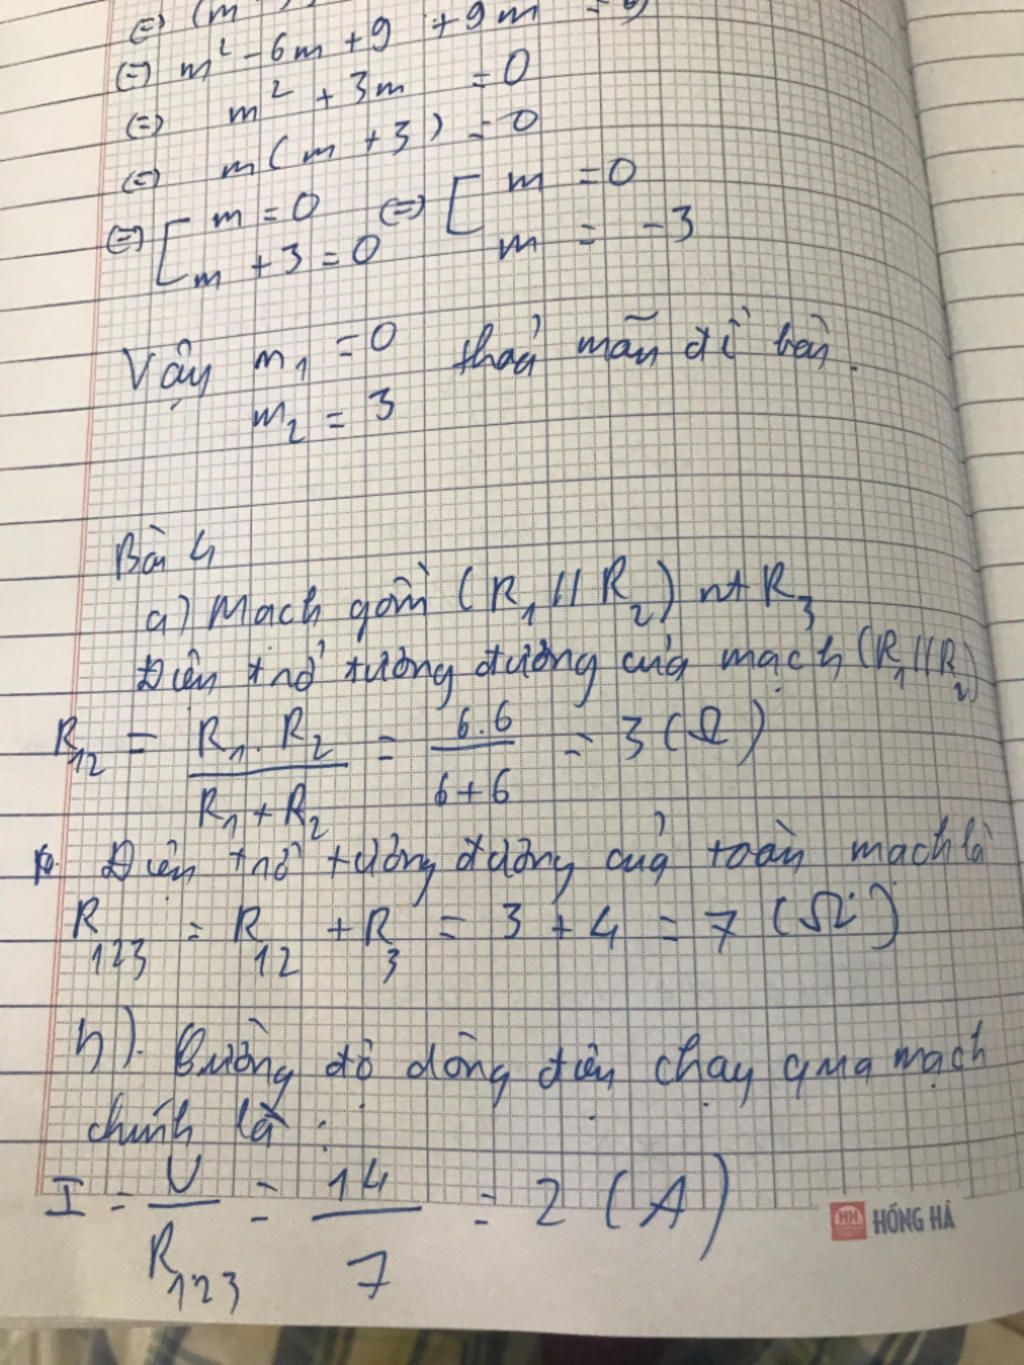 ⇔ (m
⇔ m² - 6m + 9 + 9m = 9
⇔ m² + 3m = 0
⇔ m(m + 3) = 0
⇔ [ m = 0 ⇔ [ m = 0
m + 3 = 0 m = -3
Vậy m₁ = 0 thoả mãn đề bài.
m₂ = 3
Bài 4
a) Mạch gồm (R₁ // R₂) nt R₃
Điện trở tương đương của mạch (R₁ // R₂)
R₁₂ = R₁.R₂ / R₁ + R₂ = 6.6 / 6+6 = 3 (Ω)
Điện trở tương đương của toàn mạch là
R₁₂₃ = R₁₂ + R₃ = 3 + 4 = 7 (Ω)
b). Cường độ dòng điện chạy qua mạch
chính là :
I = U / R₁₂₃ = 14 / 7 = 2 (A)
HH HỒNG HÀ